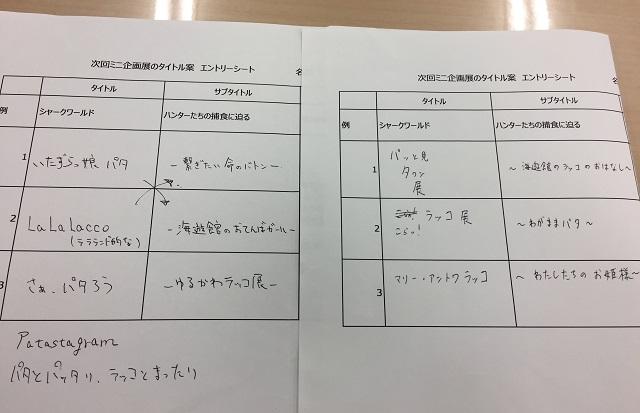 次回ミニ企画展のタイトル案 エントリーシート 名
タイトル サブタイトル
例 シャークワールド ハンターたちの捕食に迫る
1 いたずらっ娘 パタ -繋ぎたい 命のバトン-
2 LaLaLacco -海遊館のおてんばガール-
(ララランド的な)
3 さぁ、パタろう -ゆるかわラッコ展-
Patastagram
パタとパッタリ、ラッコとまったり
次回ミニ企画展のタイトル案 エントリーシート 名
タイトル サブタイトル
例 シャークワールド ハンターたちの捕食に迫る
1 パッと見 ~海遊館のラッコのおはなし~
タウン
展
2 ラッコ展 ~わがままパタ~
こらっ!
3 マリー・アントワラッコ ~わたしたちのお姫様~